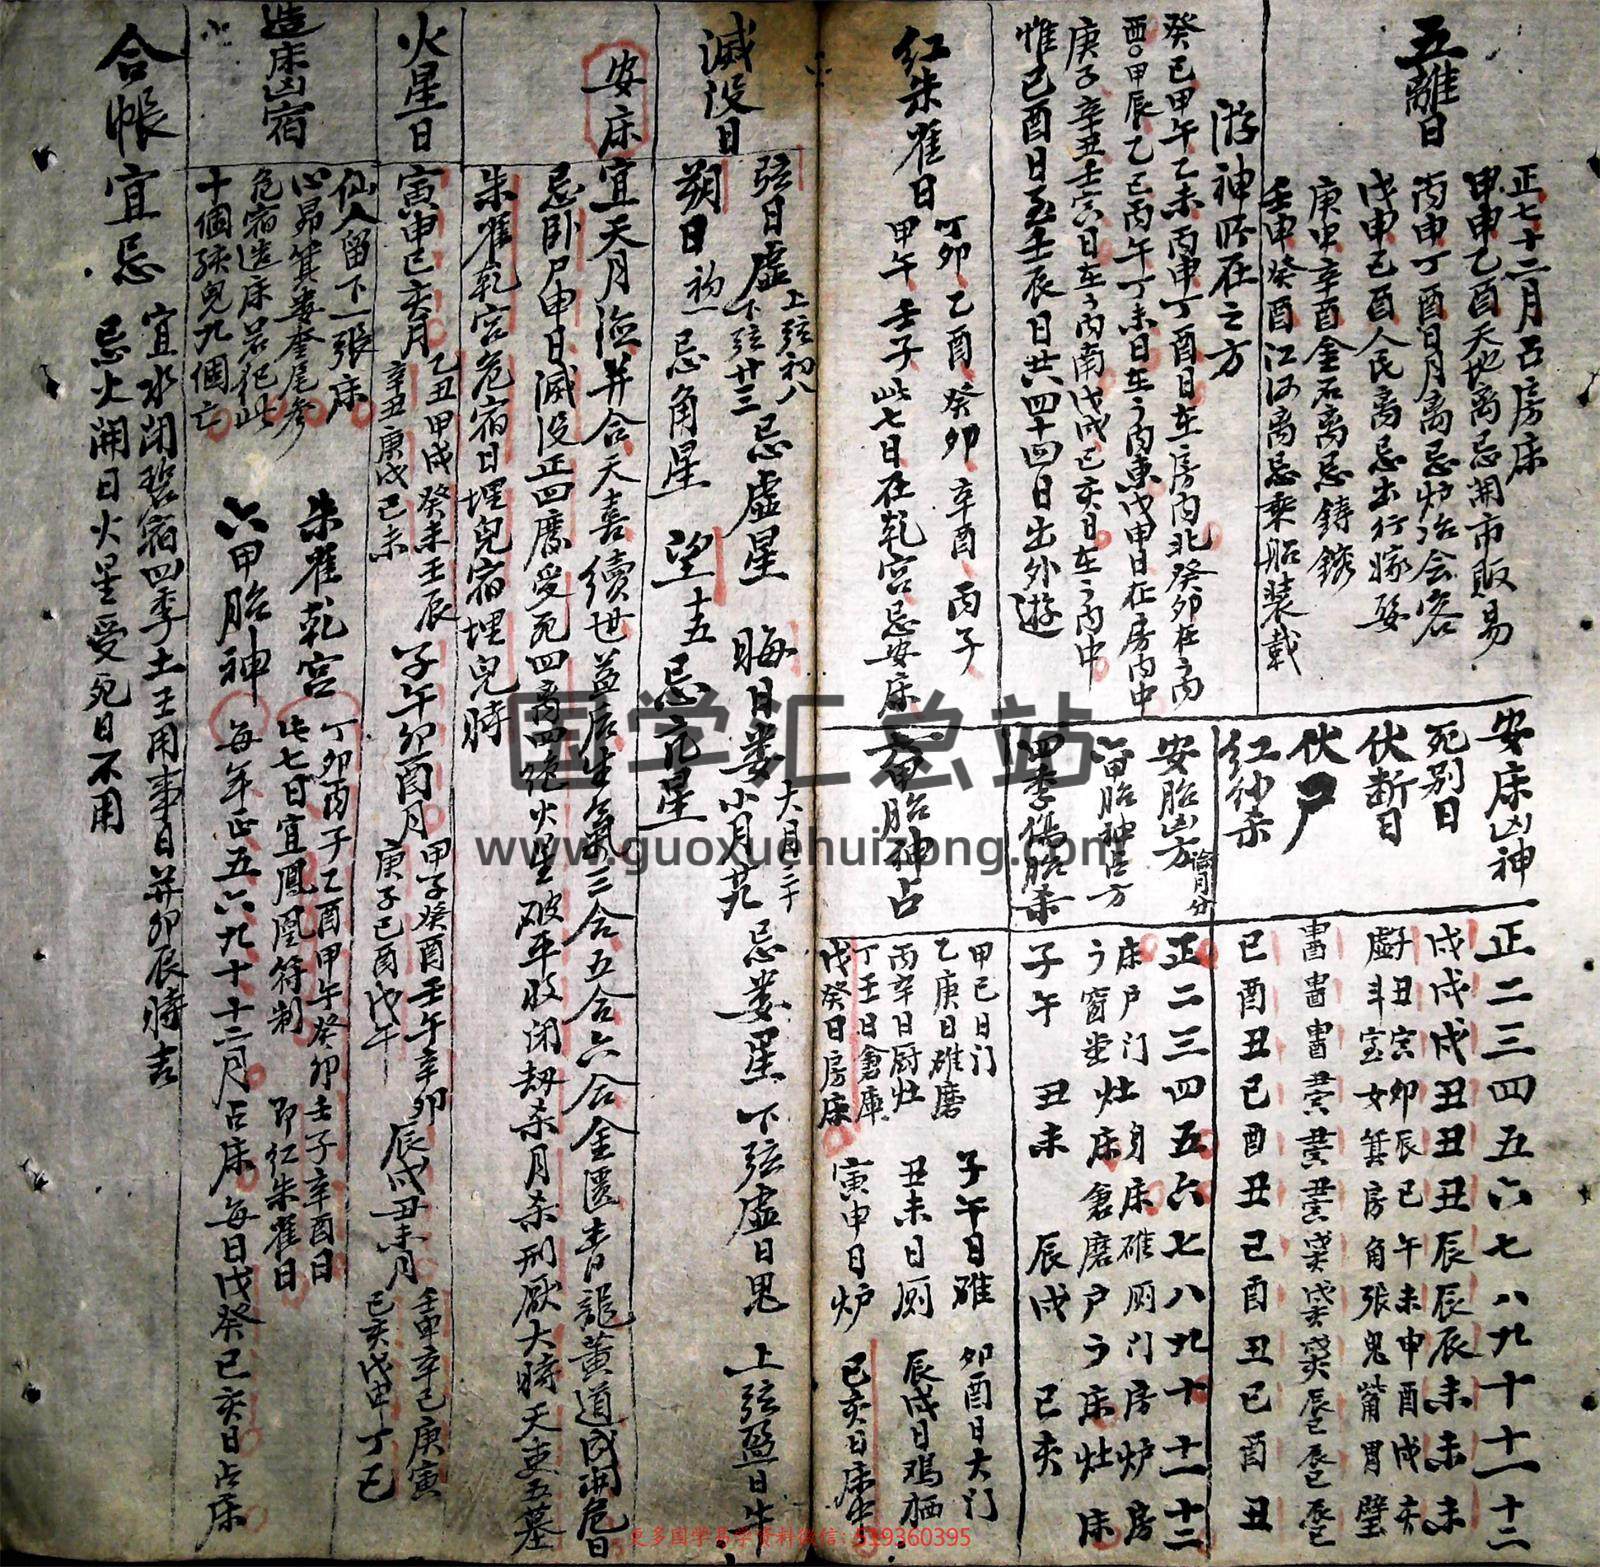 五離日
正七十二月占房床
甲申乙酉天地离忌開市販易
丙申丁酉日月离忌炉冶会客
戊申己酉人民离忌出行嫁娶
庚申辛酉金石离忌鋳鎔
壬申癸酉江河离忌乘船装載
游神所在之方
癸巳甲午乙未丙申丁酉日在房内北癸卯在房内
酉甲辰乙巳丙午丁未日在房内東戊申日在房内中
庚子辛丑壬寅日在房内南戊戌己亥日在房内中
惟己酉日至壬辰日共四十四日出外遊
红朱雀日
丁卯乙酉癸卯辛酉丙子
甲午壬子此七日在乾宫忌安床
安床凶神
正二三四五六七八九十十一十二
死别日
戌戌戌丑丑丑辰辰辰未未未
伏断日
子丑寅卯辰巳午未申酉戌亥
虚斗室女箕房角張鬼觜胃壁
伏尸
红紗杀
巳酉丑巳酉丑巳酉丑巳酉丑
安胎凶方
論月分
正二三四五六七八九十十一十二
六甲胎神占方
床户门灶身床碓厕门房炉房
四季傷胎杀
子午 丑未 辰戌 巳亥
六甲胎神占
甲己日门
乙庚日碓磨
丙辛日厨灶
丁壬日倉庫
戊癸日房床
子午日碓
丑未日厕
寅申日炉
卯酉日大门
辰戌日鸡栖
巳亥日床
滅没日
弦日虚
上弦初八
下弦廿三
忌虚星
晦日娄
忌娄星
下弦虚日鬼
上弦盈日牛
朔日
初一
忌角星
望十五
忌亢星
安床
宜天月德并合天喜續世益后生氣三合五合六合金匮青龍黄道成開危日
忌卧尸申日滅没正四廢受死四离四绝火星破平收闭劫杀月杀刑厭大時天吏五墓
朱雀乾宫危宿日埋兒宿埋兒時
火星日
寅申巳亥月
乙丑甲戌癸未壬辰
辛丑庚戌己未
子午卯酉月
甲子癸酉壬午辛卯
庚子己酉戊午
辰戌丑未月
壬申辛巳庚寅
己亥戊申丁巳
造床凶宿
仙人留下一張床
心昴箕娄奎尾参
危宿造床若犯此
十個孩兒九個亡
朱雀乾宫
丁卯丙子乙酉甲午癸卯壬子辛酉日
此七日宜鳳凰符制
即红朱雀日
六甲胎神
每年正五六九十十二月占床每日戊癸巳亥日占床
合帳宜忌
宜水闭碧宿四季土王用事日并卯辰時吉
忌火開日火星受死日不用
国学汇总站
www.guoxuehuizong.com
更多国学易学资料微信:519360395